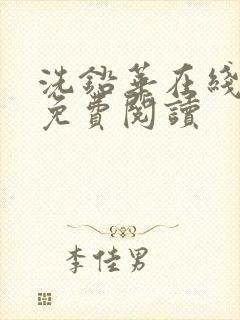 洗鉛華在綫
免費閱讀
李佳男